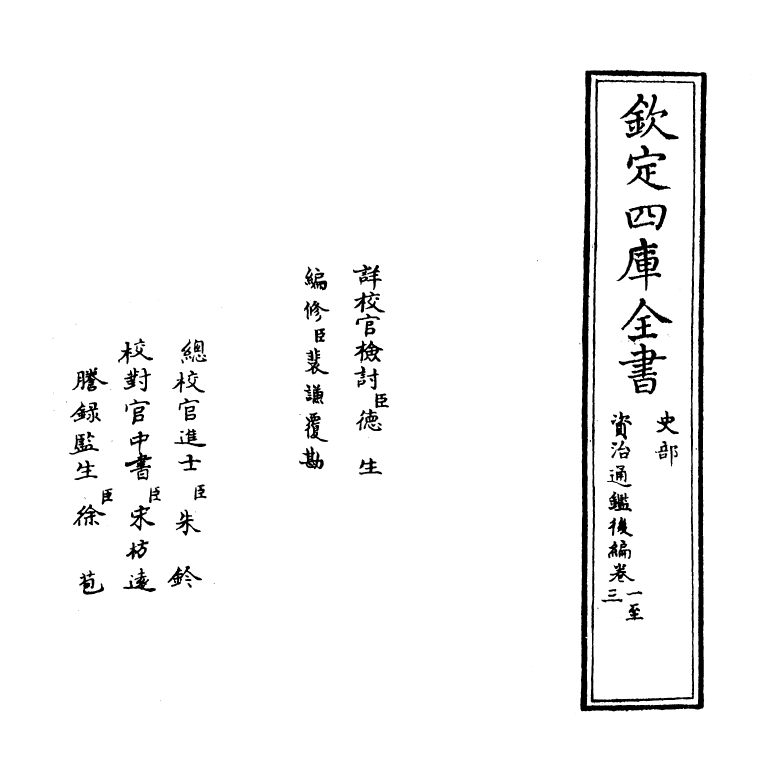 欽定四庫全書
史部
資治通鑑後編卷一至三
詳校官檢討臣德生
編修臣裴謙覆勘
總校官進士臣朱鈐
校對官中書臣宋枋遠
謄録監生臣徐苞